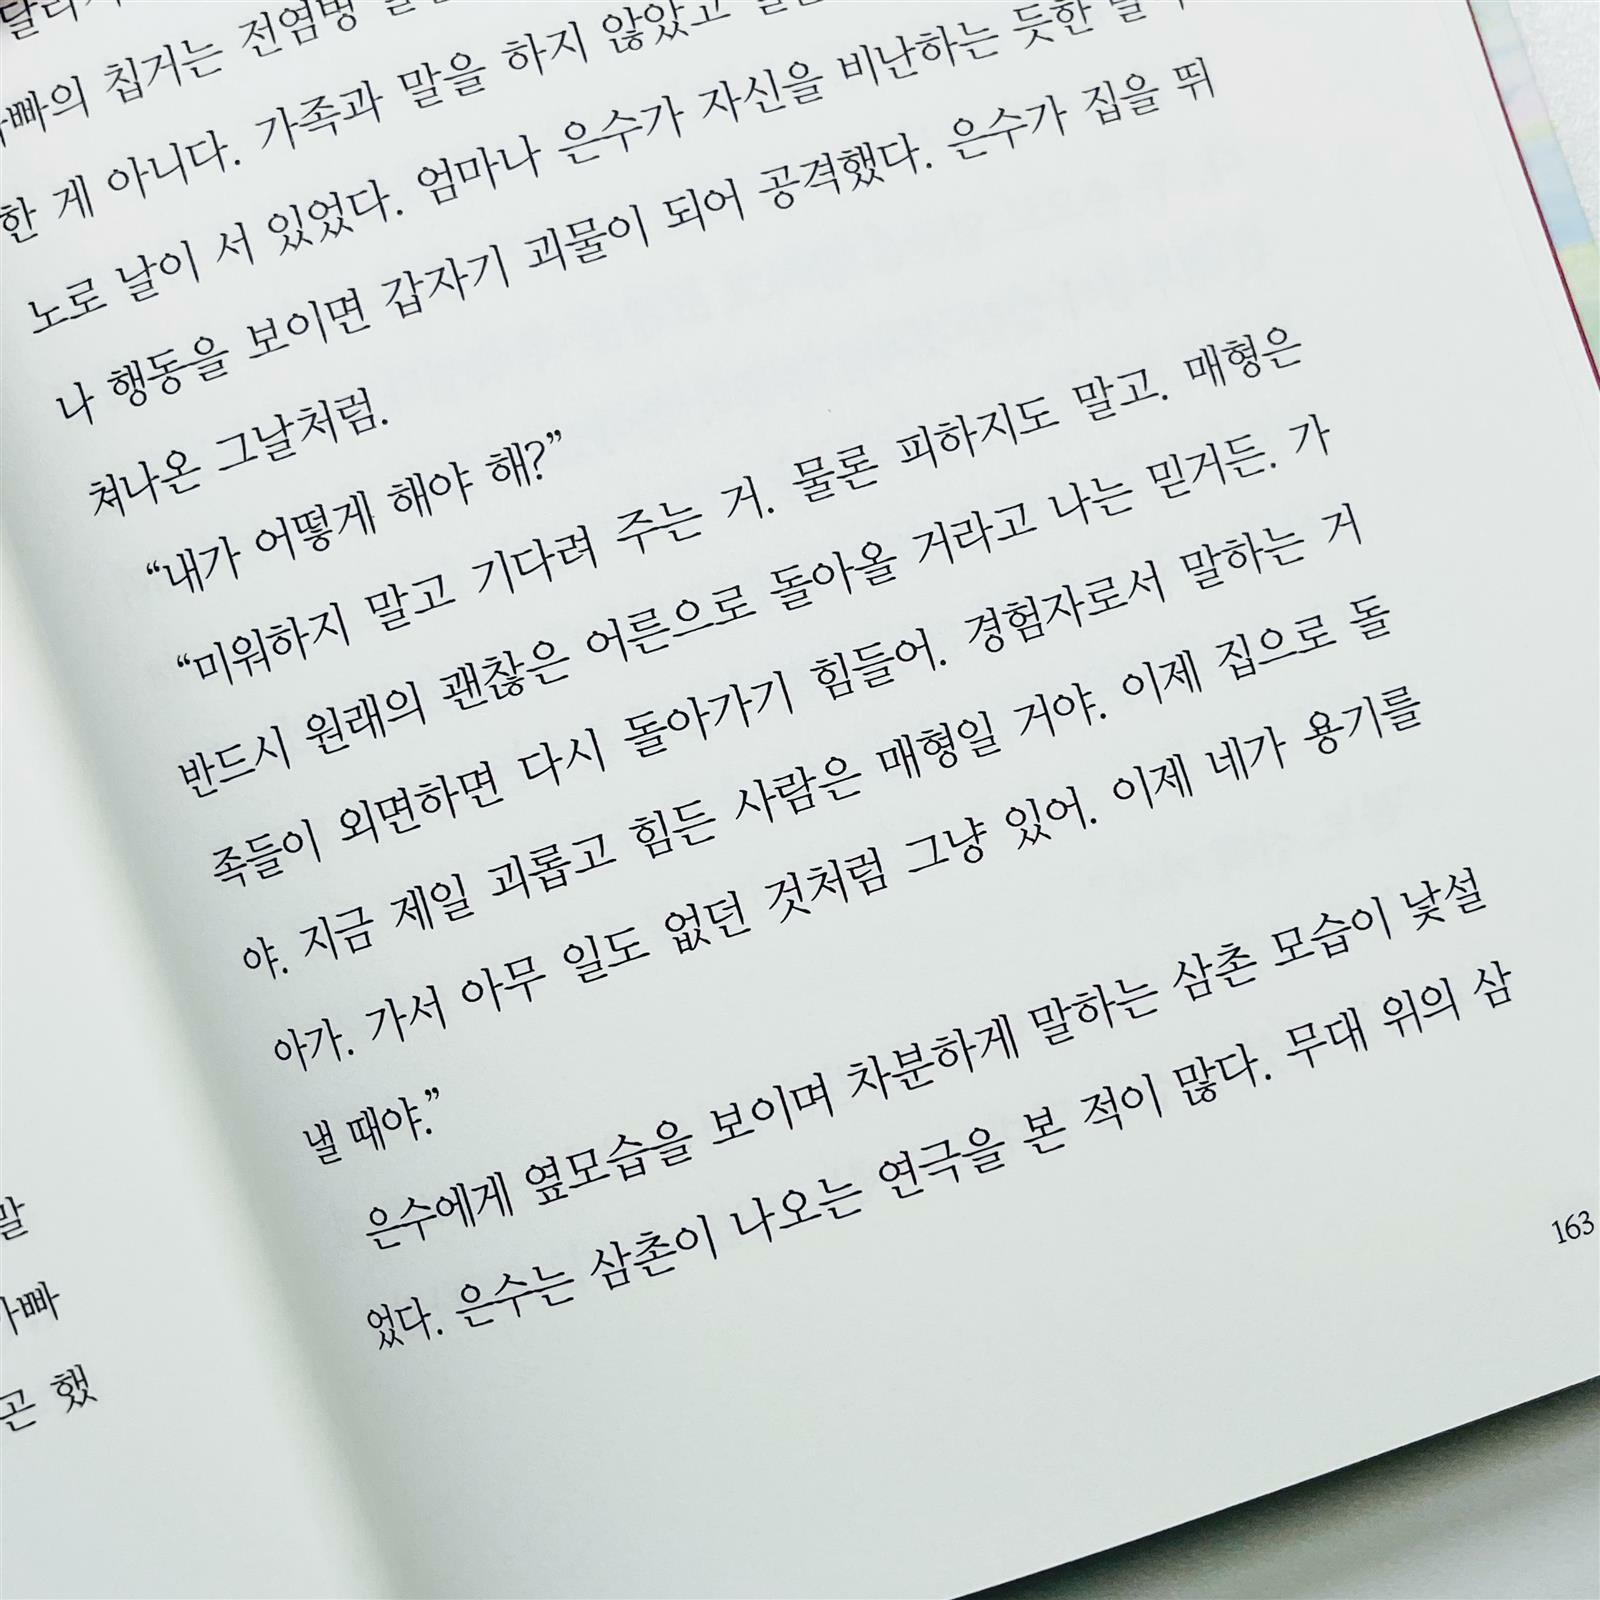 빠의 칩거는 전염병
한 게 아니다. 가족과 말을 하지 않았고
노로 날이 서 있었다. 엄마나 은수가 자신을 비난하는 듯한
나 행동을 보이면 갑자기 괴물이 되어 공격했다. 은수가 집을 뛰
쳐나온 그날처럼.
“내가 어떻게 해야 해?”
“미워하지 말고 기다려 주는 거. 물론 피하지도 말고. 매형은
반드시 원래의 괜찮은 어른으로 돌아올 거라고 나는 믿거든. 가
족들이 외면하면 다시 돌아가기 힘들어. 경험자로서 말하는 거
야. 지금 제일 괴롭고 힘든 사람은 매형일 거야. 이제 집으로 돌
아가. 가서 아무 일도 없던 것처럼 그냥 있어. 이제 네가 용기를
낼 때야.”
은수에게 옆모습을 보이며 차분하게 말하는 삼촌 모습이 낯설
었다. 은수는 삼촌이 나오는 연극을 본 적이 많다. 무대 위의 삼
163
말
빠
곤 했